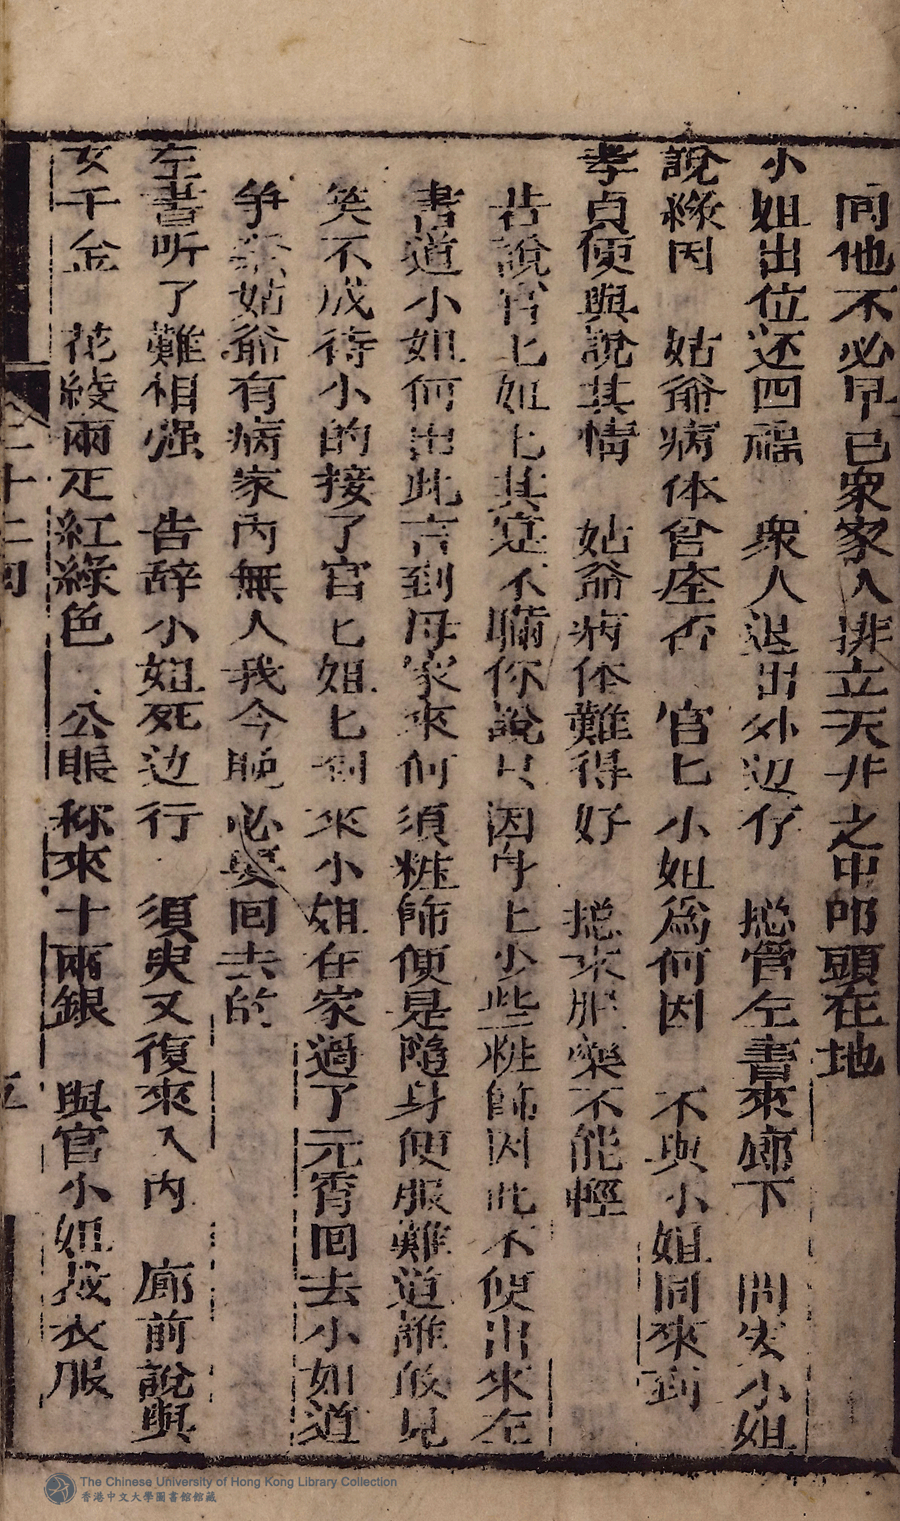 同他不必早已衆家人排立天井之中叩頭在地
小姐出位还四福　衆人退出外边仔　揔管左書來廊下　問安小姐
說緣因　姑爺病体曾痊否　官匕小姐爲何因　不與小姐同來到
孝貞便與說其情　姑爺病体難得好　揔來服藥不能輕
若說官匕姐匕其寔不瞞你說只因身上少些粧飾因此不便出來左
書道小姐何出此言到母家來何須粧飾便是隨身便服難道誰敢見
笑不成待小的接了官匕姐匕到來小姐在家過了元宵回去小姐道
爭柰姑爺有病家內無人我今晚必要回去的
左書听了難相强　告辞小姐死边行　須臾又復來入內　廊前說與
女千金　花綾兩疋紅綠色　公賬称來十兩銀　與官小姐裁衣服
二十二回
五
The Chinese University of Hong Kong Library Collection
香港中文大學圖書館館藏